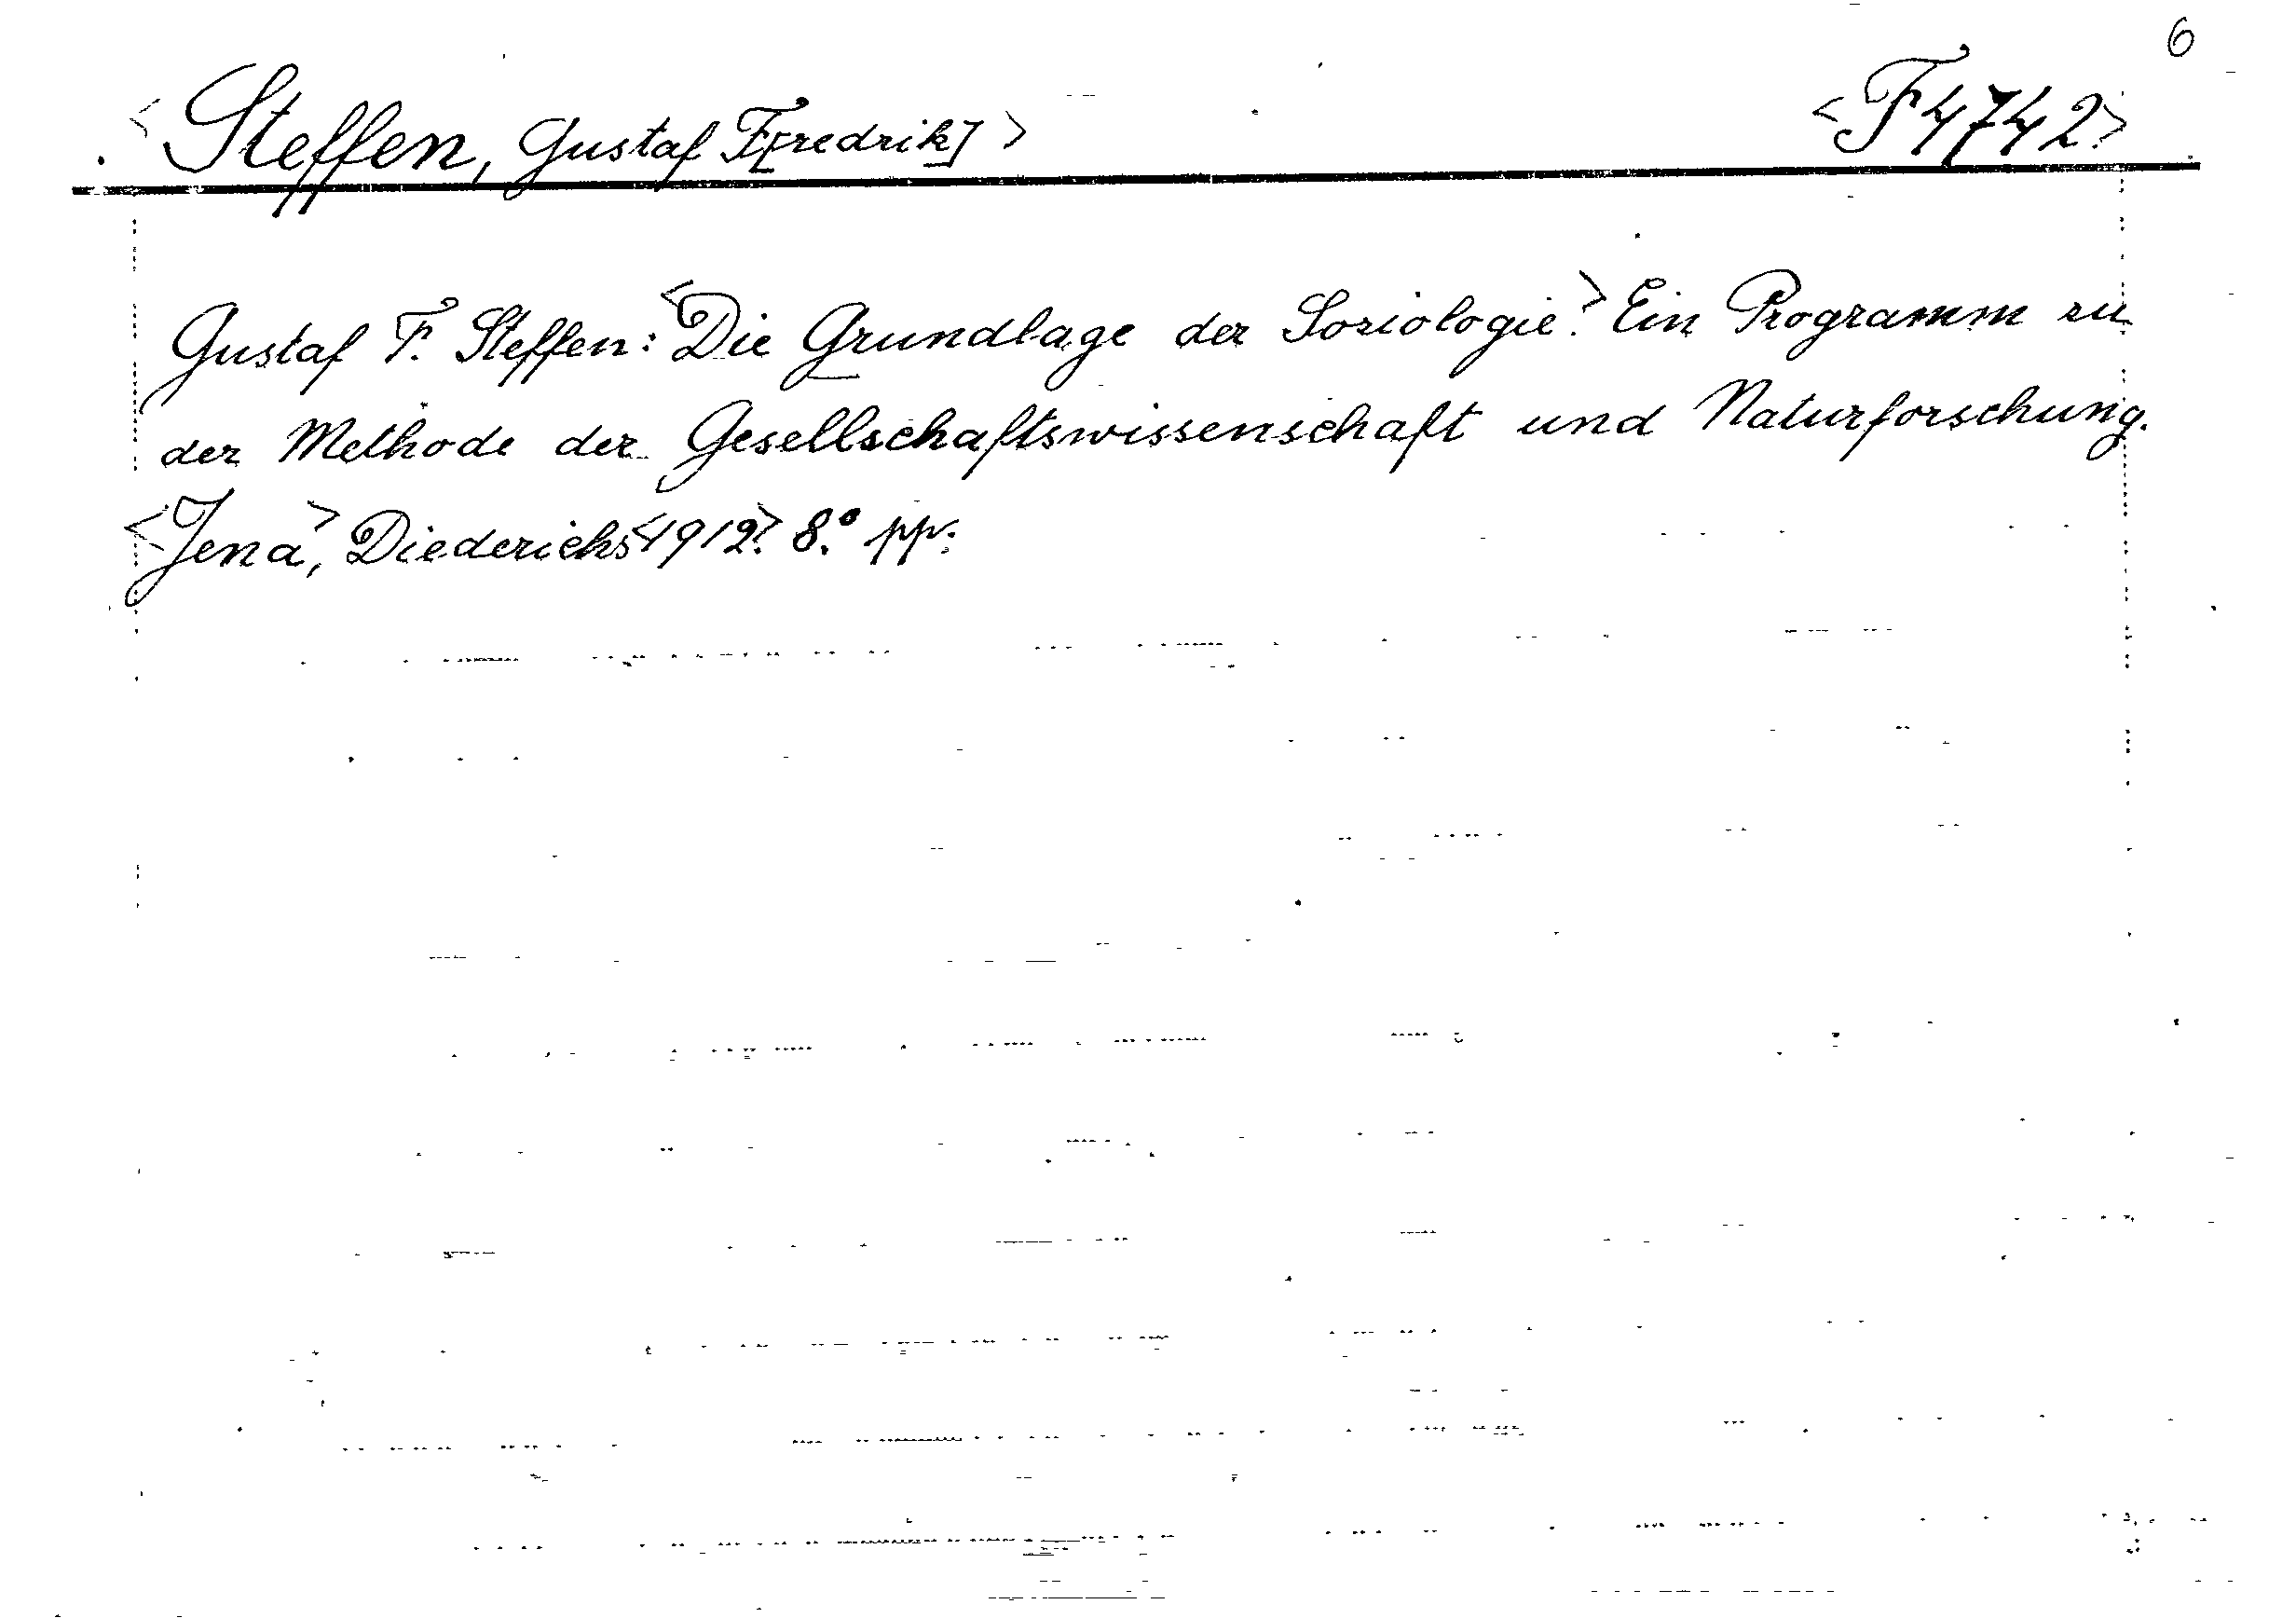 6
<Steffen, Gustaf F[redrik]> <F4742>
Gustaf F. Steffen: <Die Grundlage der Soziologie.> Ein Programm zu
der Methode der Gesellschaftswissenschaft und Naturforschung.
<Jena>, Diederichs <1912>. 8.° pp.